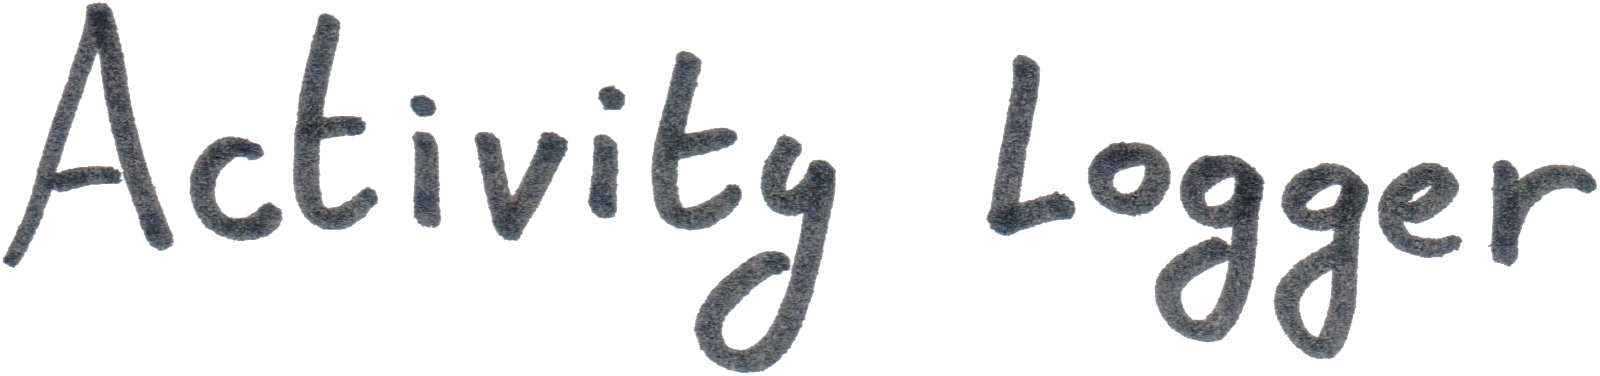 Activity Logger